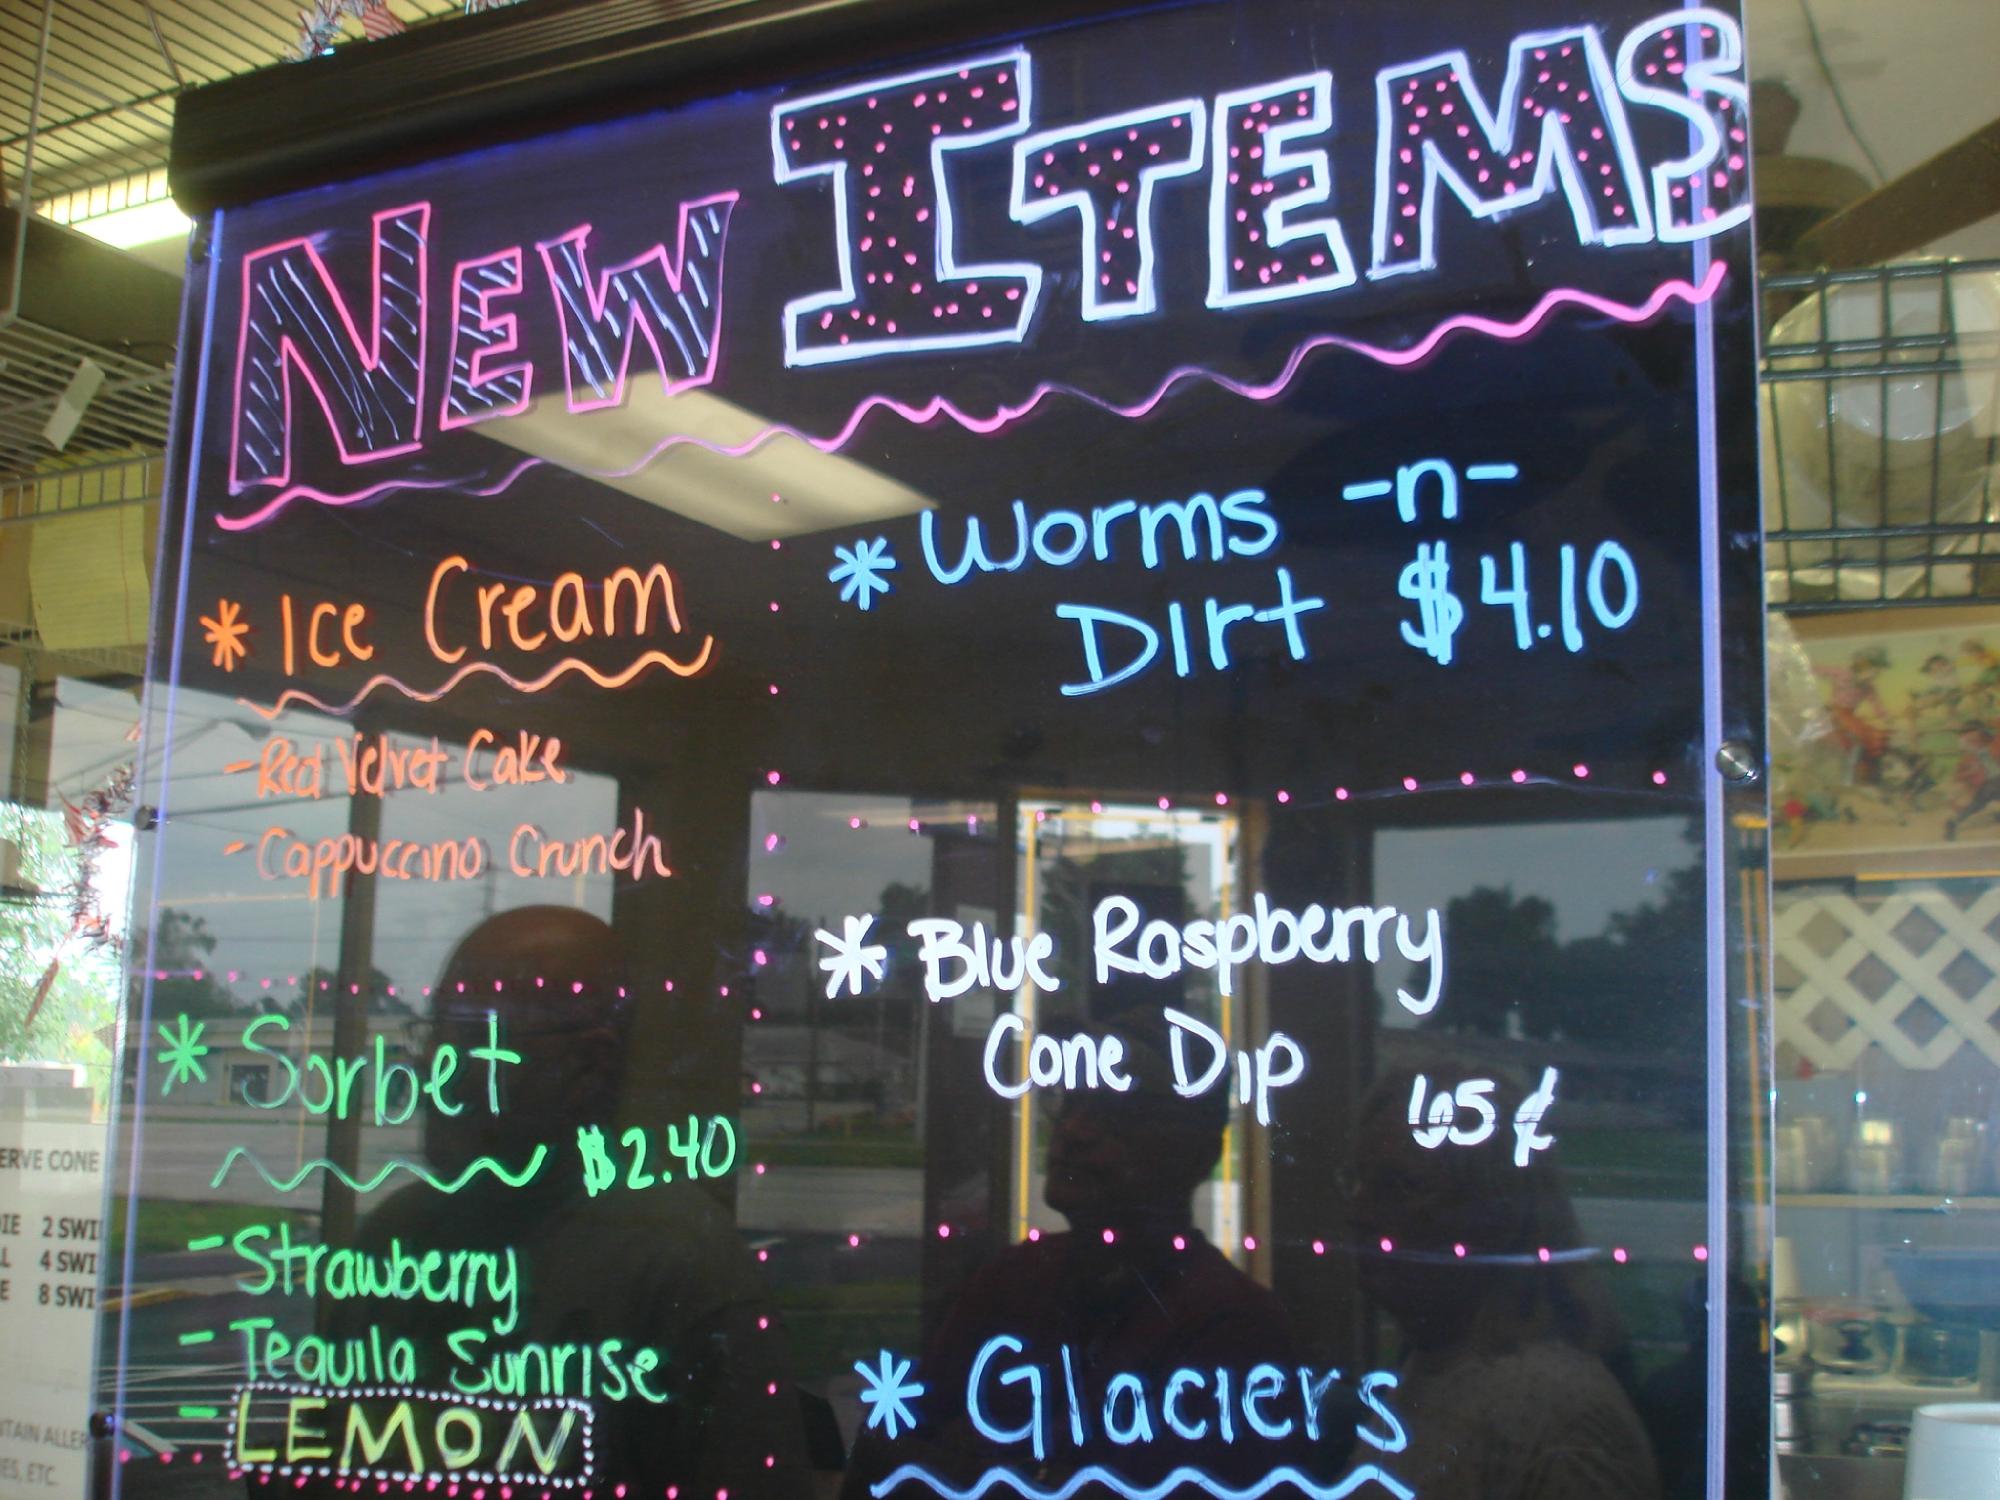 New Items
* Ice Cream
- Red Velvet Cake
- Cappuccino Crunch
* Sorbet
$2.40
- Strawberry
- Tequila Sunrise
- LEMON
* Worms -n-
Dirt $4.10
* Blue Raspberry
Cone Dip 65¢
* Glaciers
ERVE CONE
IE 2 SWI
L 4 SWI
E 8 SWI
NTAIN ALLER
ES, ETC.